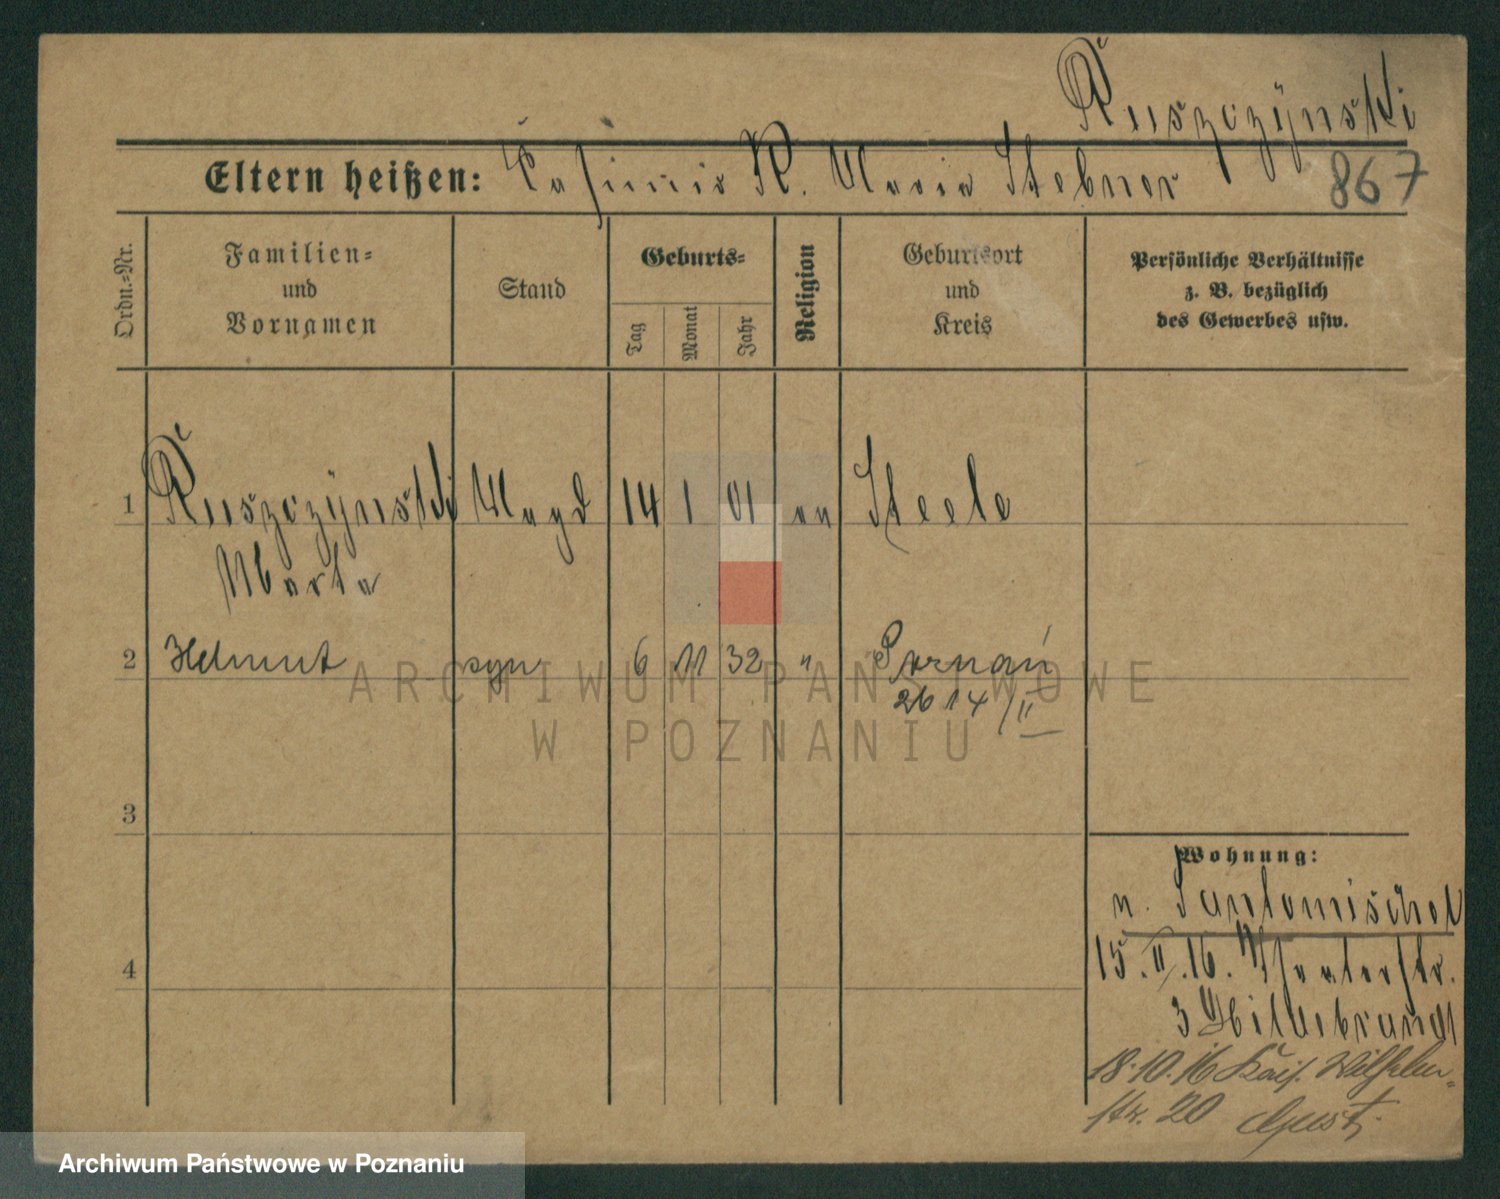 Ruszczÿnski
Eltern heißen: Casimir R. Maria Stebner
867
Ordn.=Nr.
Familien=
und
Vornamen
Stand
Geburts=
Tag
Monat
Jahr
Religion
Geburtsort
und
Kreis
Persönliche Verhältnisse
z. B. bezüglich
des Gewerbes usw.
1 Ruszczÿnski Magd 14 1 01 Steele
Marta
2 Helmut syn 6 11 32 " Poznań
26 14/II
3
Wohnung:
n. Santomischel
15.II.16. Theaterstr.
4
3 Hildebrandt
18.10.16 Kais. Wilhelm=
str. 20
ARCHIWUM PAŃSTWOWE
W POZNANIU
Archiwum Państwowe w Poznaniu